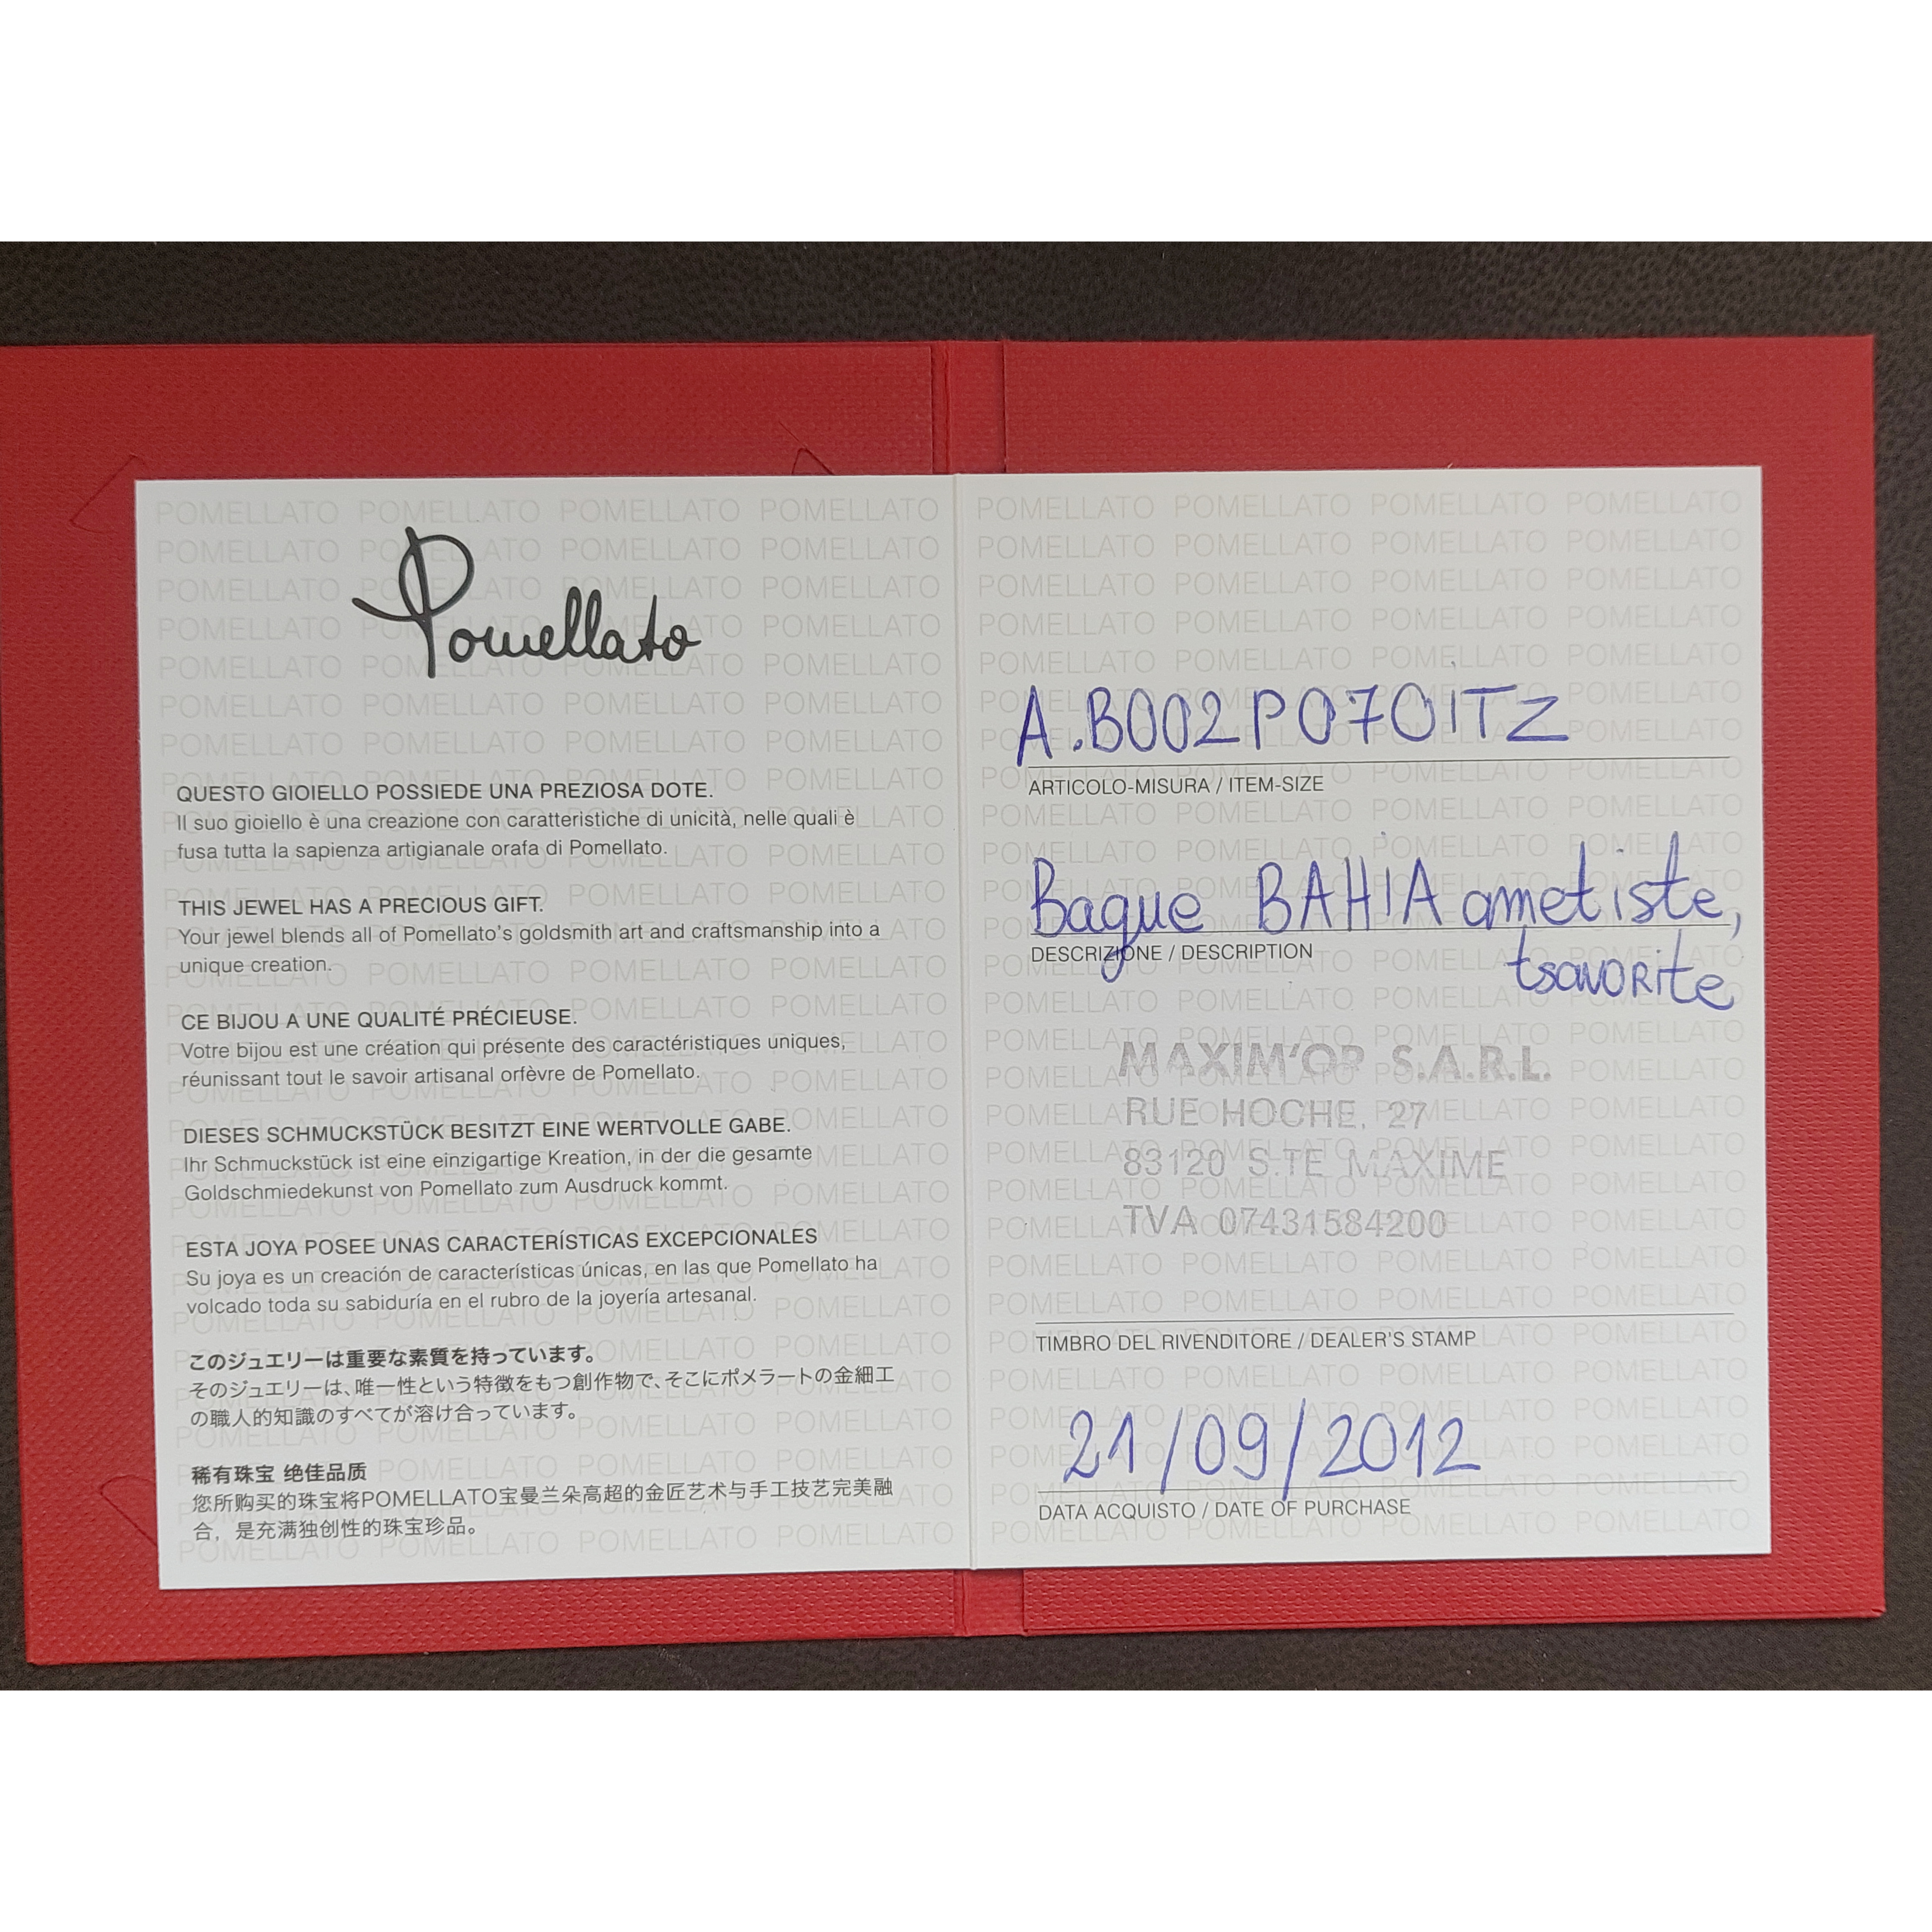 Pomellato
QUESTO GIOIELLO POSSIEDE UNA PREZIOSA DOTE.
Il suo gioiello è una creazione con caratteristiche di unicità, nelle quali è
fusa tutta la sapienza artigianale orafa di Pomellato.
THIS JEWEL HAS A PRECIOUS GIFT.
Your jewel blends all of Pomellato's goldsmith art and craftsmanship into a
unique creation.
CE BIJOU A UNE QUALITÉ PRÉCIEUSE.
Votre bijou est une création qui présente des caractéristiques uniques,
réunissant tout le savoir artisanal orfèvre de Pomellato.
DIESES SCHMUCKSTÜCK BESITZT EINE WERTVOLLE GABE.
Ihr Schmuckstück ist eine einzigartige Kreation, in der die gesamte
Goldschmiedekunst von Pomellato zum Ausdruck kommt.
ESTA JOYA POSEE UNAS CARACTERÍSTICAS EXCEPCIONALES
Su joya es un creación de características únicas, en las que Pomellato ha
volcado toda su sabiduría en el rubro de la joyería artesanal.
このジュエリーは重要な素質を持っています。
そのジュエリーは、唯一性という特徴をもつ創作物で、そこにポメラートの金細工
の職人的知識のすべてが溶け合っています。
稀有珠宝 绝佳品质
您所购买的珠宝将POMELLATO宝曼兰朵高超的金匠艺术与手工技艺完美融
合，是充满独创性的珠宝珍品。
A.B002PO7OiTZ
ARTICOLO-MISURA / ITEM-SIZE
Bague BAHiA ametiste,
DESCRIZIONE / DESCRIPTION
tsavorite
MAXIM'OR S.A.R.L.
RUE HOCHE, 27
83120 S.TE MAXIME
TVA 07431584200
TIMBRO DEL RIVENDITORE / DEALER'S STAMP
21/09/2012
DATA ACQUISTO / DATE OF PURCHASE